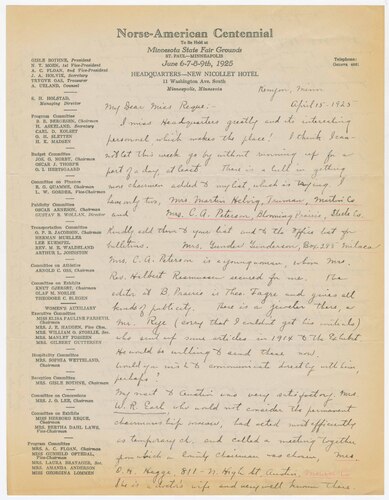 Norse-American Centennial
To Be Held at
Minnesota State Fair Grounds
ST. PAUL—MINNEAPOLIS
June 6-7-8-9th, 1925
HEADQUARTERS—NEW NICOLLET HOTEL
11 Washington Ave. South
Minneapolis, Minnesota
Telephone:
GISLE BOTHNE, President
N. T. MOEN, 1st Vice-President
A. C. FLOAN, 2nd Vice-President
J. A. HOLVIK, Secretary
TRYGVE OAS, Treasurer
A. UELAND, Counsel
S. H. HOLSTAD,
Managing Director
Program Committee
B. E. BERGESEN, Chairman
H. ASKELAND, Secretary
CARL D. KOLSET
O. H. SLETTEN
H. E. MADSEN
Budget Committee
JOS. G. NORBY, Chairman
OSCAR J. THORPE
O. I. HERTSGAARD
Committee on Finance
E. G. QUAMME, Chairman
L. W. GORDER, Vice-Chairman
Publicity Committee
OSCAR ARNESON, Chairman
GUSTAV B. WOLLAN, Director
Transportation Committee
G. P. B. JACOBSON, Chairman
HERMAN MUELLER
LEE KUEMPEL
REV. M. E. WALDELAND
ARTHUR L. JOHNSTON
Committee on Athletics
ARNOLD C. OSS, Chairman
Committee on Exhibits
KNUT GJERSET, Chairman
OLAF M. NORLIE
THEODORE C. BLEGEN
WOMEN'S AUXILIARY
Executive Committee
MISS ELISA PAULINE FARSETH,
Chairman
MRS. WILLIAM O. STORLIE, Sec.
MRS. MANLEY FOSSEEN
MRS. GILBERT GUTTERSEN
Hospitality Committee
MRS. SOPHIA WETTELAND,
Chairman
Reception Committee
MRS. GISLE BOTHNE, Chairman
Committee on Concessions
MRS. J. O. LEE, Chairman
Committee on Exhibits
MISS HERBORG REQUE, Chairman
MRS. BERTHA DAHL LAWS,
Vice-Chairman
Program Committee
MRS. A. C. FLOAN, Chairman
MISS GUNHILD OFTEDAL,
Vice-Chairman
MRS. LAURA BRATAGER, Sec.
MRS. AMANDA ANDERSON
MISS GEORGINA LOMMEN
Kenyon, Minn.
April 15 - 1925
My Dear Miss Reque:-
I miss Headquarters greatly and its interesting
personnel which makes the place! I think I can-
not let this week go by without running up for a
part of a day at least. There is a lull in getting
new chairmen added to my list, which is trying
twenty two, Mrs Martin Helvig, Truman, Martin Co
and Mrs. C. A. Peterson, Blooming Prairie, Steele Co.
Kindly add them to your list and to the office list for
bulletins. Mrs. Gunder Gunderson, Box 288 Milaca
Mrs. C. A. Peterson is a young woman, whom Mrs.
Rev. Holbert Rasmussen secured for me. The
editor at B. Prairie is Theo. Fagre and gives all
kinds of publicity. There is a jeweler there, a
Mr. Rege (sorry that I couldn't get his initials)
who sent up some articles in 1914 to the Exhibit
He would be willing to send these now
Would you wish to communicate directly with him,
perhaps?
My visit to Austin was very satisfactory Mrs
W. R. Earl who would not consider the permanent
chairmanship however, had acted most efficiently
as temporary ch. and called a meeting together
from which a county chairman was chosen, Mrs.
O. H. Hegge, 811 - N. High St. Austin
She is a dentist's wife and very well known there